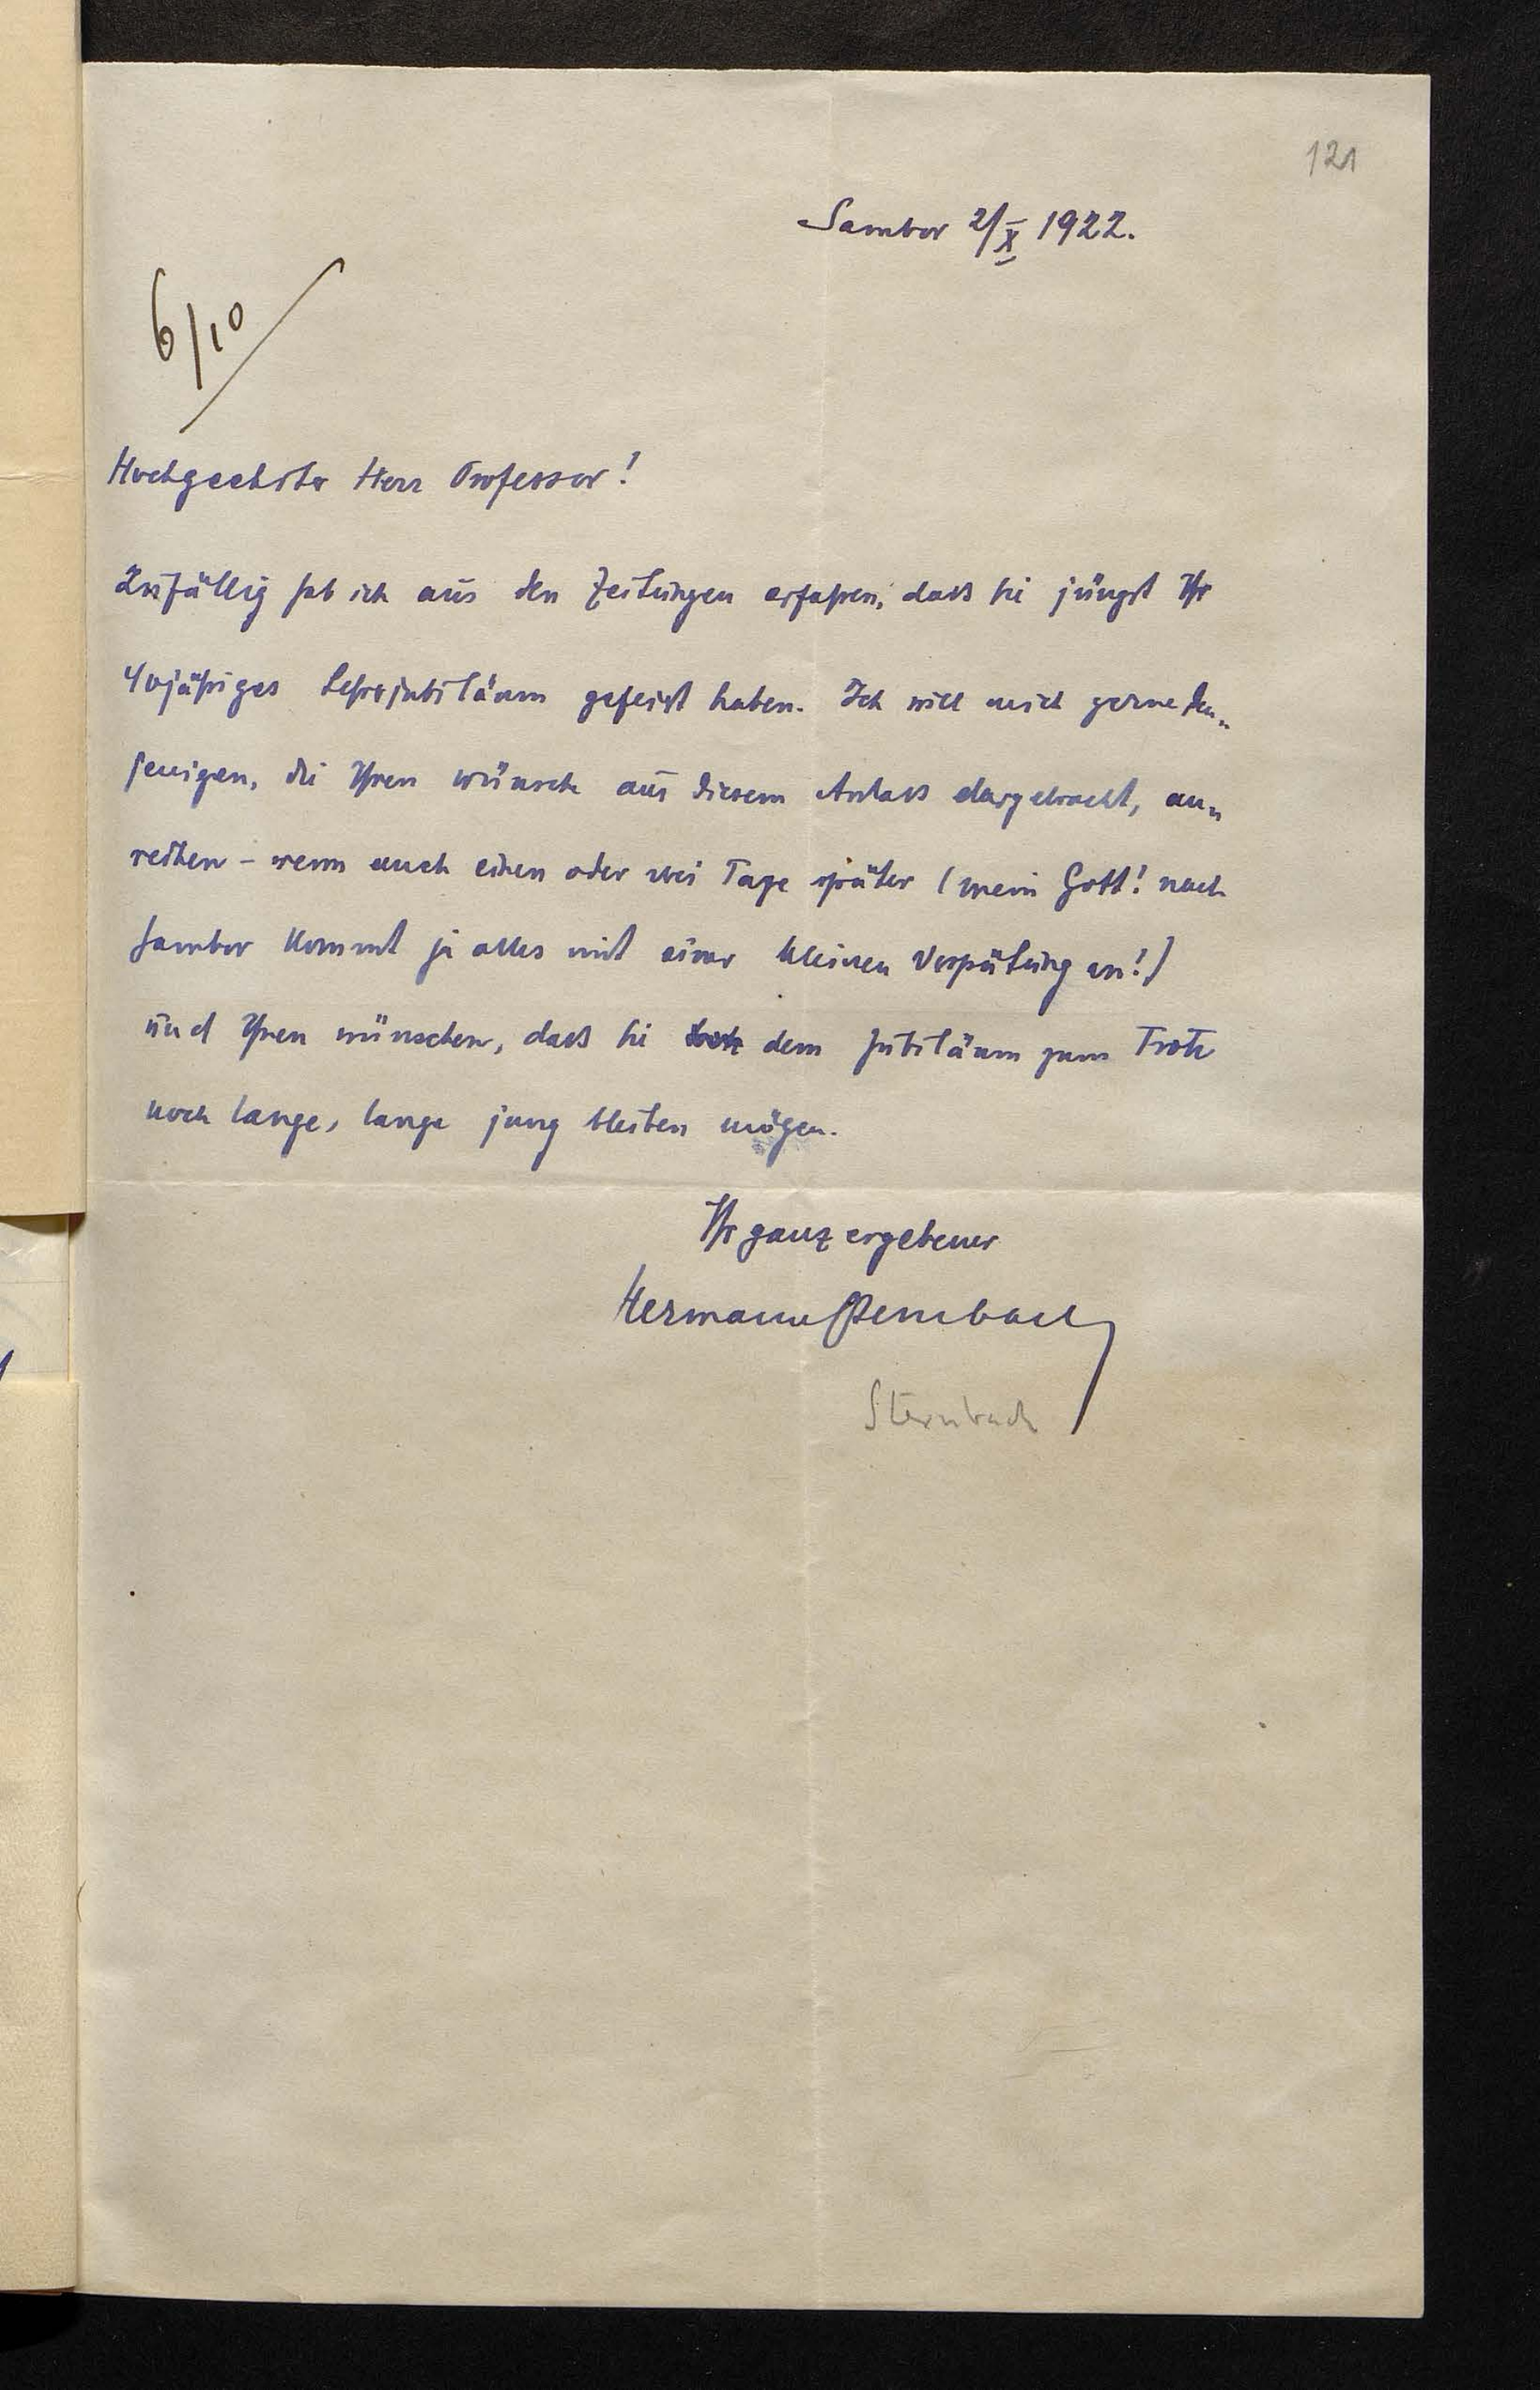 121
Sambor 2/X 1922.
6/10
Hochgeehrter Herr Professor!
Zufällig hab ich aus den Zeitungen erfahren, dass Sie jüngst Ihr
40jähriges Lehrerjubiläum gefeiert haben. Ich will mich gerne den-
jenigen, die Ihnen Wünsche aus diesem Anlass dargebracht, an-
reihen - wenn auch einen oder zwei Tage später (mein Gott! nach
Sambor kommt ja alles mit einer kleinen Verspätung an!)
und Ihnen wünschen, dass Sie dem Jubiläum zum Trotz
noch lange, lange jung bleiben mögen.
Ihr ganz ergebener
Hermann Sternbach
Sternbach